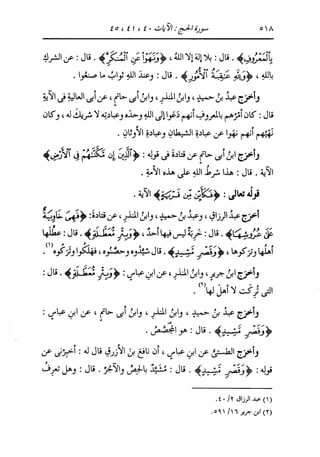 ٥١٨ سورة الحج : الآيات ٤٠ ، ٤١ ، ٤٥
بِالْمَعْرُوفِ﴾ . قال : بلا إلهَ إلا اللهُ ، ﴿وَنَهَوْا عَنِ الْمُنكَرِ﴾ . قال : عن الشركِ
باللهِ ، ﴿وَلِلَّهِ عَاقِبَةُ الْأُمُورِ﴾ . قال : وعندَ اللهِ ثوابُ ما صنَعوا .
وأخرَج عبدُ بنُ حميدٍ ، وابنُ المنذرِ ، وابنُ أبى حاتمٍ ، عن أبى العاليةِ فى الآيةِ
قال : كان أمرُهم بالمعروفِ أنهم دعَوا إلى اللهِ وحدَه وعبادتِه لا شريكَ له ، وكان
نهيُهم أنهم نهَوا عن عبادةِ الشيطانِ وعبادةِ الأوثانِ .
وأخرَج ابنُ أبى حاتمٍ عن قتادةَ فى قولِه : ﴿الَّذِينَ إِن مَّكَّنَّاهُمْ فِي الْأَرْضِ﴾
الآية . قال : هذا شرطُ اللهِ على هذه الأمةِ .
قولُه تعالى : ﴿فَكَأَيِّن مِّن قَرْيَةٍ﴾ الآية .
أخرَج عبدُ الرزاقِ ، وعبدُ بنُ حميدٍ ، وابنُ المنذرِ ، عن قتادةَ : ﴿فَهِيَ خَاوِيَةٌ
عَلَى عُرُوشِهَا﴾ . قال : خَرِبةٌ ليس فيها أحدٌ ، ﴿وَبِئْرٍ مُّعَطَّلَةٍ﴾ . قال : عطَّلها
أهلُها وترَكوها ، ﴿وَقَصْرٍ مَّشِيدٍ﴾ . قال : شيَّدوه وحصَّنوه ، فهلَكوا وترَكوه(١) .
وأخرَج ابنُ جريرٍ ، وابنُ المنذرِ ، عن ابنِ عباسٍ : ﴿وَبِئْرٍ مُّعَطَّلَةٍ﴾ . قال :
التى تُرِكت لا أهلَ لها(٢) .
وأخرَج عبدُ بنُ حميدٍ ، وابنُ المنذرِ ، وابنُ أبى حاتمٍ ، عن ابنِ عباسٍ :
﴿وَقَصْرٍ مَّشِيدٍ﴾ . قال : هو المُجَصَّصُ .
وأخرَج الطستىُّ عن ابنِ عباسٍ ، أن نافعَ بنَ الأزرقِ قال له : أخبِرْنى عن
قولِه : ﴿وَقَصْرٍ مَّشِيدٍ﴾ . قال : مُشَيَّدٌ بالجِصِّ والآجُرِّ . قال : وهل تعرِفُ
(١) عبد الرزاق ٢/ ٤٠.
(٢) ابن جرير ١٦/ ٥٩١.